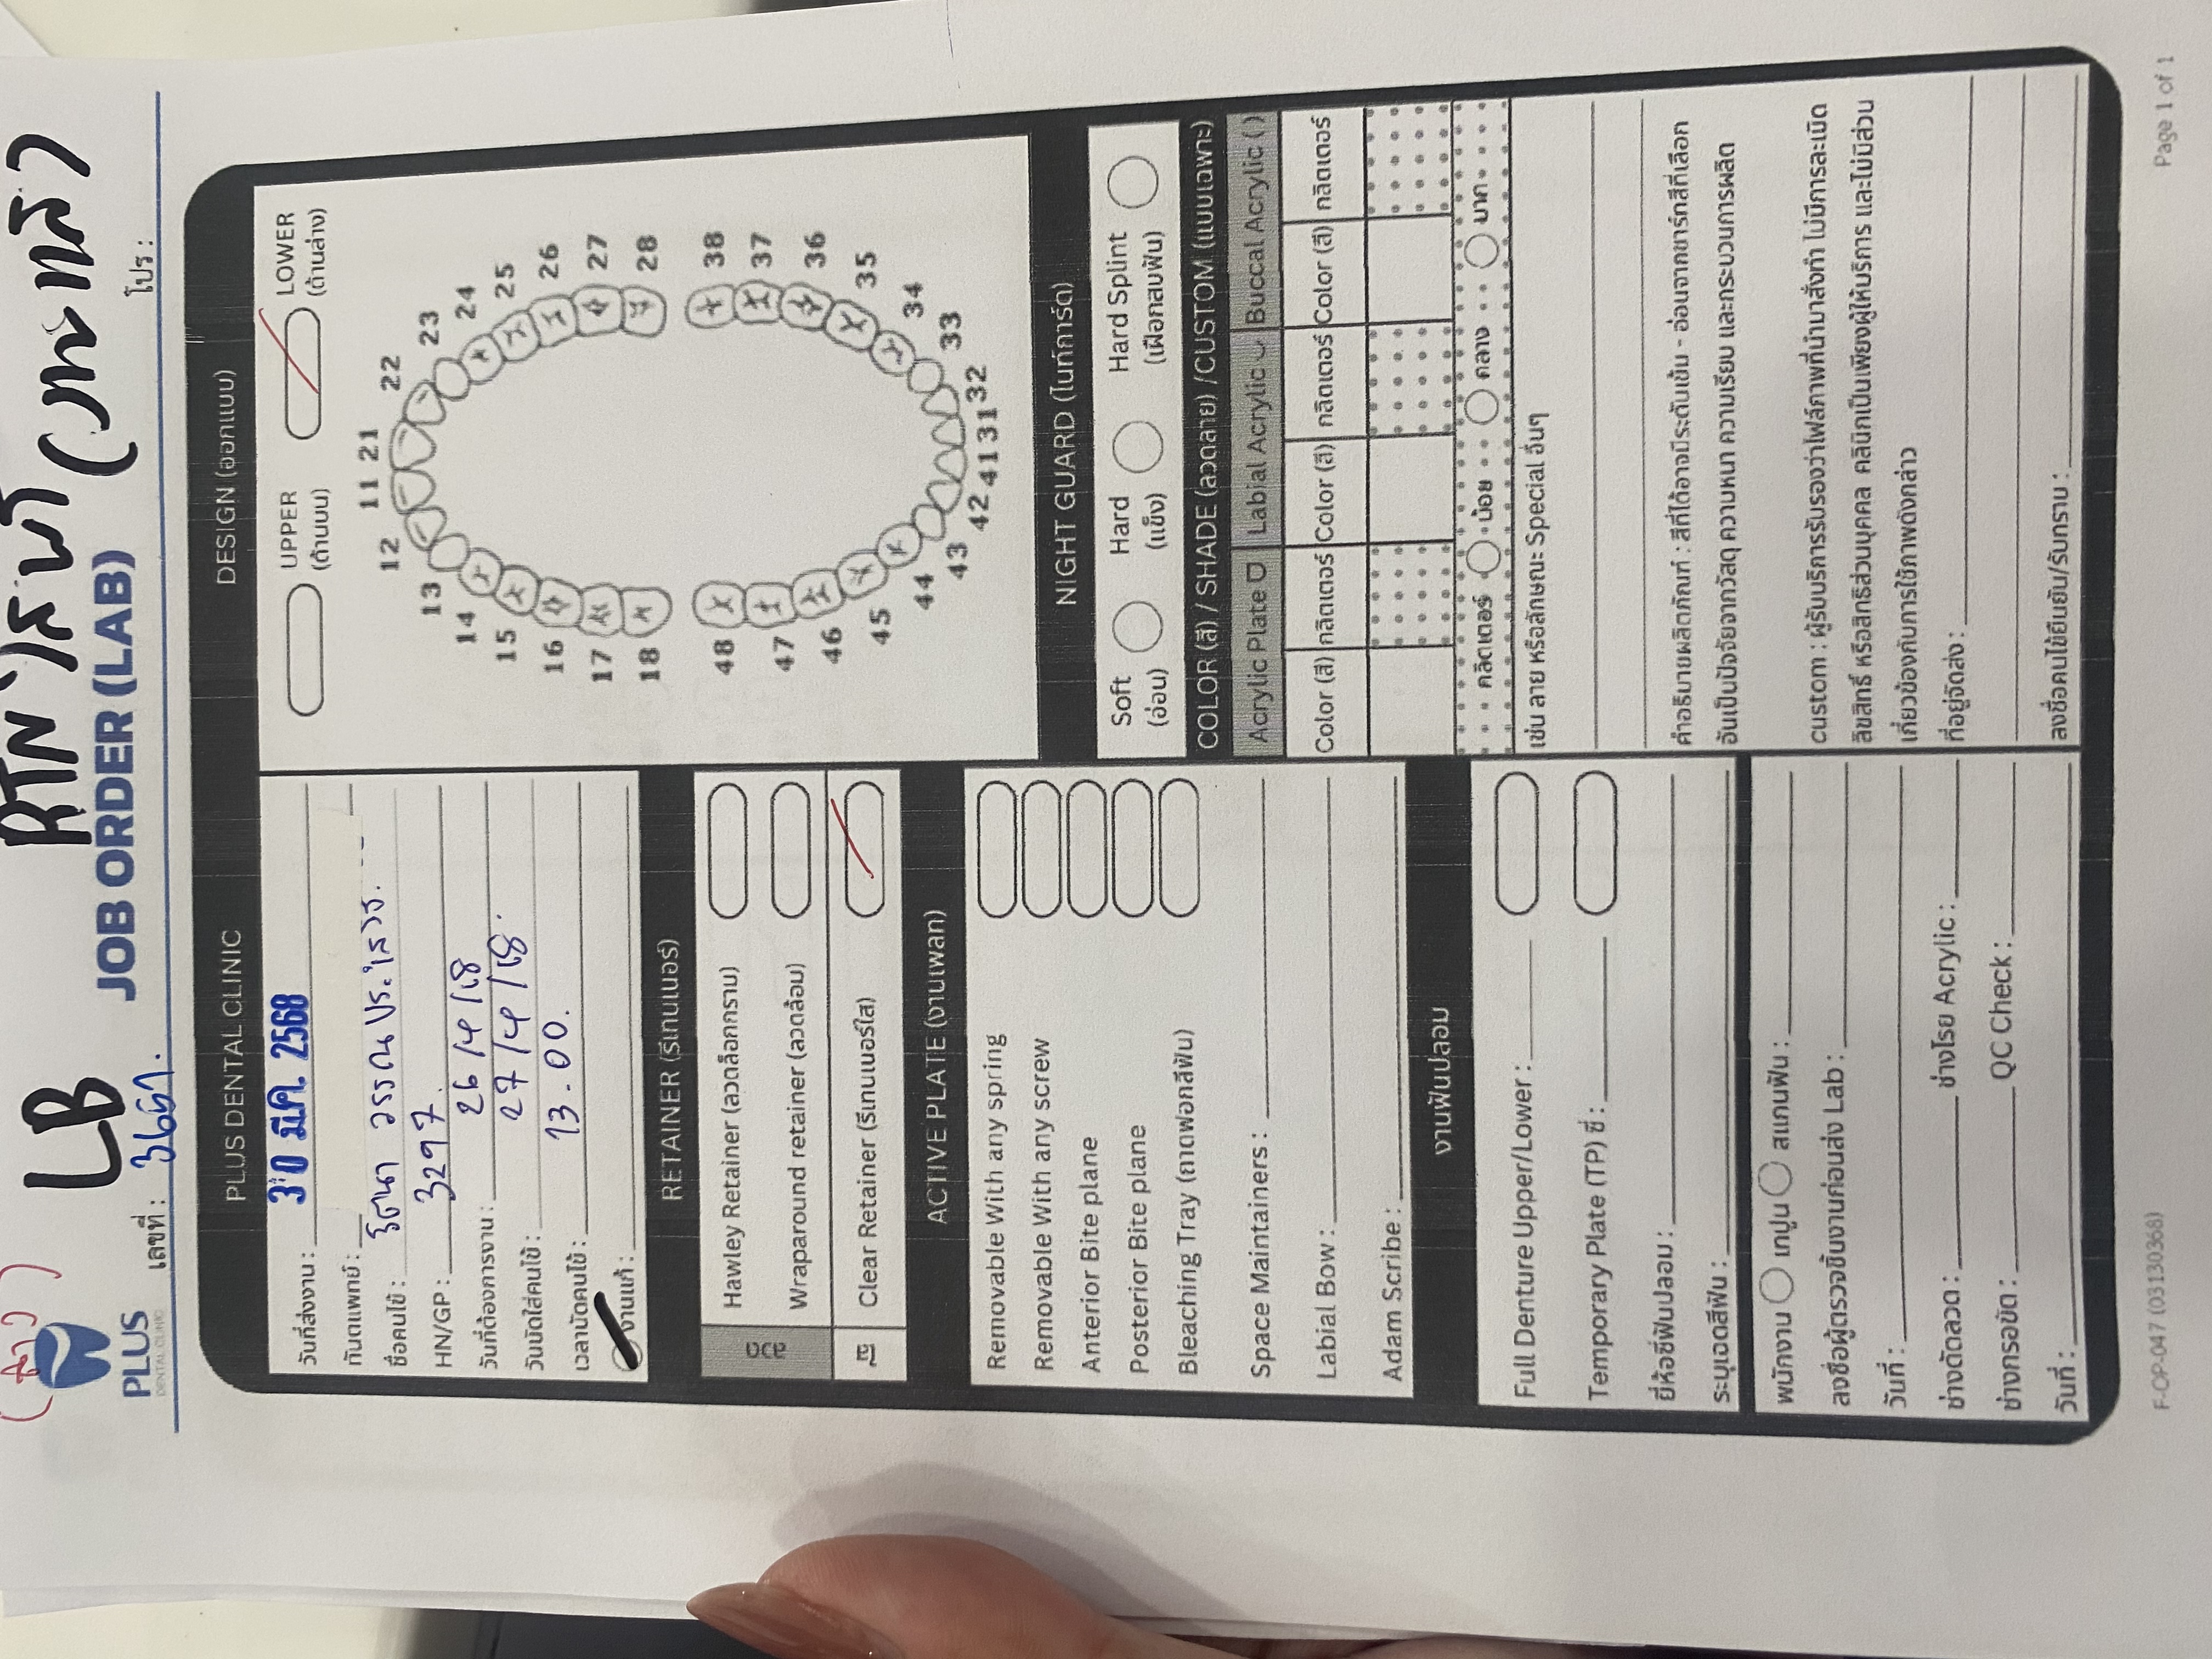 (ล่าง)
LB
RTN ใส ล่าง (งานแก้)
PLUS
DENTAL CLINIC
JOB ORDER (LAB)
เลขที่ : 3657.
โปร :
PLUS DENTAL CLINIC
วันที่ส่งงาน : 30 มี.ค. 2568
ทันตแพทย์ :
ชื่อคนไข้ :
HN/GP : 3297.
วันที่ต้องการงาน : 26/4/68
วันนัดใส่คนไข้ : 27/4/68
เวลานัดคนไข้ : 13.00.
งานแก้ :
RETAINER (รีเทนเนอร์)
ลวด
Hawley Retainer (ลวดล็อกกราม)
Wraparound retainer (ลวดล้อม)
ใส
Clear Retainer (รีเทนเนอร์ใส)
ACTIVE PLATE (งานเพลท)
Removable With any spring
Removable With any screw
Anterior Bite plane
Posterior Bite plane
Bleaching Tray (ถาดฟอกสีฟัน)
Space Maintainers :
Labial Bow :
Adam Scribe :
งานฟันปลอม
Full Denture Upper/Lower :
Temporary Plate (TP) ซี่ :
ยี่ห้อซี่ฟันปลอม :
ระบุเฉดสีฟัน :
พนักงาน เทปูน สแกนฟัน :
ลงชื่อผู้ตรวจชิ้นงานก่อนส่ง Lab :
วันที่ :
ช่างดัดลวด : ช่างโรย Acrylic :
ช่างกรอขัด : QC Check :
วันที่ :
DESIGN (ออกแบบ)
UPPER
(ด้านบน)
LOWER
(ด้านล่าง)
11 21
12 22
13 23
14 24
15 25
16 26
17 27
18 28
48 38
47 37
46 36
45 35
44 34
43 33
42 41 31 32
NIGHT GUARD (ไนท์การ์ด)
Soft
(อ่อน)
Hard
(แข็ง)
Hard Splint
(เฝือกสบฟัน)
COLOR (สี) / SHADE (ลวดลาย) /CUSTOM (แบบเฉพาะ)
Acrylic Plate Labial Acrylic Buccal Acrylic ( )
Color (สี) กลิตเตอร์ Color (สี) กลิตเตอร์ Color (สี) กลิตเตอร์
กลิตเตอร์ น้อย กลาง มาก
เช่น ลาย หรือลักษณะ Special อื่นๆ
คำอธิบายผลิตภัณฑ์ : สีที่ได้อาจมีระดับเข้ม - อ่อนจากชาร์ทสีที่เลือก
อันเป็นปัจจัยจากวัสดุ ความหนา ความเรียบ และกระบวนการผลิต
custom : ผู้รับบริการรับรองว่าไฟล์ภาพที่นำมาสั่งทำ ไม่มีการละเมิด
ลิขสิทธิ์ หรือสิทธิส่วนบุคคล คลินิกเป็นเพียงผู้ให้บริการ และไม่มีส่วน
เกี่ยวข้องกับการใช้ภาพดังกล่าว
ที่อยู่จัดส่ง :
ลงชื่อคนไข้ยืนยัน/รับทราบ :
F-OP-047 (03130368)
Page 1 of 1